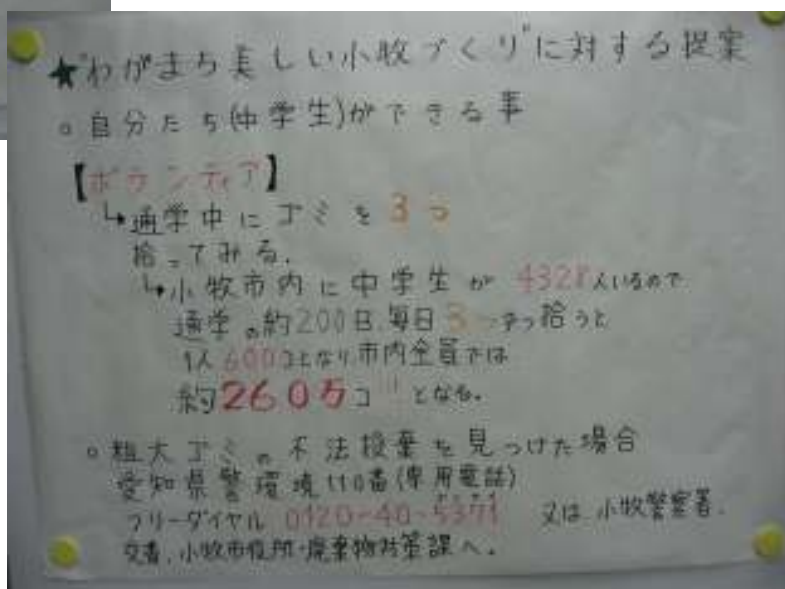 ★"わがまち美しい小牧づくり"に対する提案
○自分たち(中学生)ができる事
【ボランティア】
↳通学中にゴミを3つ
拾ってみる.
↳小牧市内に中学生が4328人いるので
通学の約200日.毎日3つずつ拾うと
1人600コとなり市内全員では
約260万コ!!となる。
○粗大ゴミの不法投棄を見つけた場合
愛知県警環境110番(専用電話)
フリーダイヤル 0120-40-5371 又は 小牧警察署.
交番.小牧市役所・廃棄物対策課へ.